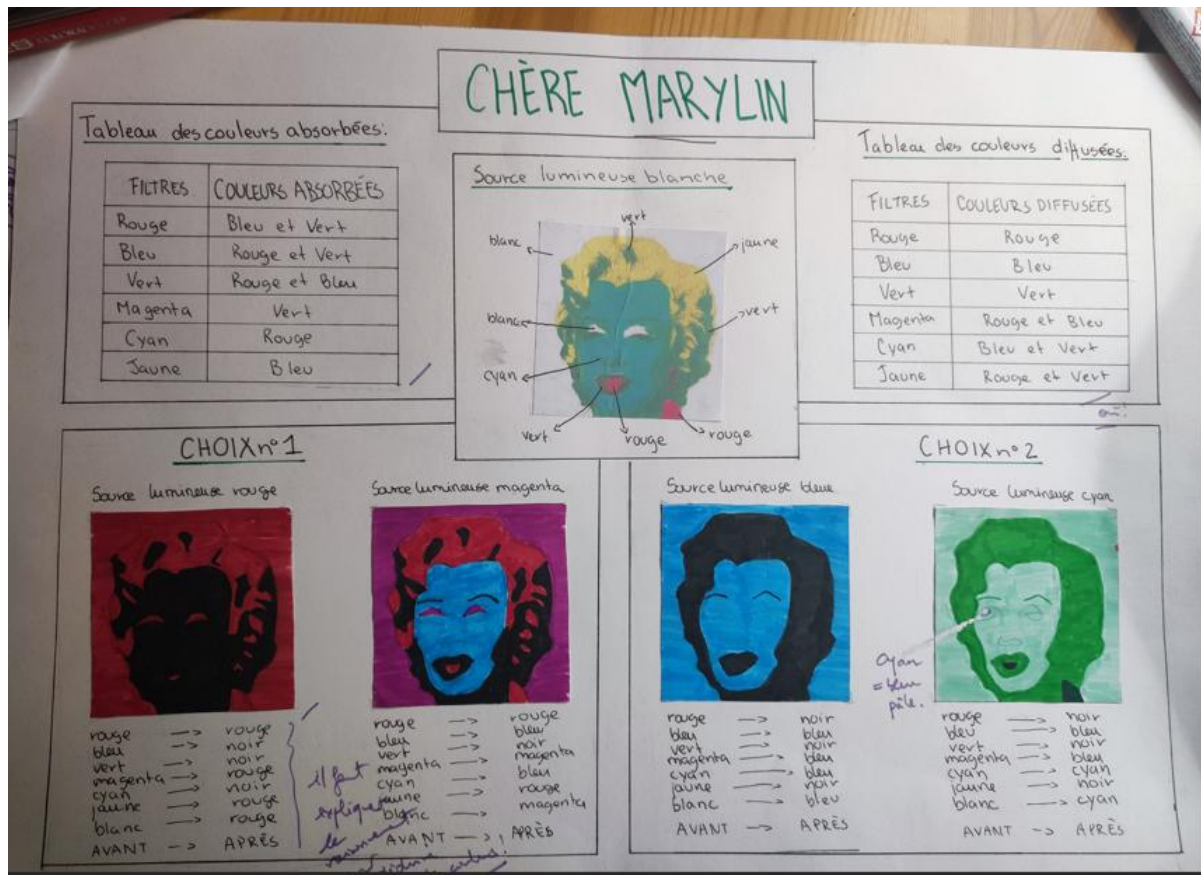 CHÈRE MARYLIN
Tableau des couleurs absorbées:
FILTRES COULEURS ABSORBÉES
Rouge Bleu et Vert
Bleu Rouge et Vert
Vert Rouge et Bleu
Magenta Vert
Cyan Rouge
Jaune Bleu
Source lumineuse blanche
vert
blanc
jaune
blanc
vert
cyan
vert
rouge
rouge
Tableau des couleurs diffusées:
FILTRES COULEURS DIFFUSÉES
Rouge Rouge
Bleu Bleu
Vert Vert
Magenta Rouge et Bleu
Cyan Bleu et Vert
Jaune Rouge et Vert
CHOIX n°1
Source lumineuse rouge
rouge -> rouge
bleu -> noir
vert -> noir
magenta -> rouge
cyan -> noir
jaune -> rouge
blanc -> rouge
AVANT -> APRÈS
Source lumineuse magenta
rouge -> rouge
bleu -> bleu
vert -> noir
magenta -> magenta
cyan -> bleu
jaune -> rouge
blanc -> magenta
AVANT -> APRÈS
il faut
expliquer
le
CHOIX n°2
Source lumineuse bleue
rouge -> noir
bleu -> bleu
vert -> noir
magenta -> bleu
cyan -> bleu
jaune -> noir
blanc -> bleu
AVANT -> APRÈS
Source lumineuse cyan
Cyan
= bleu
pâle.
rouge -> noir
bleu -> bleu
vert -> noir
magenta -> bleu
cyan -> cyan
jaune -> noir
blanc -> cyan
AVANT -> APRÈS